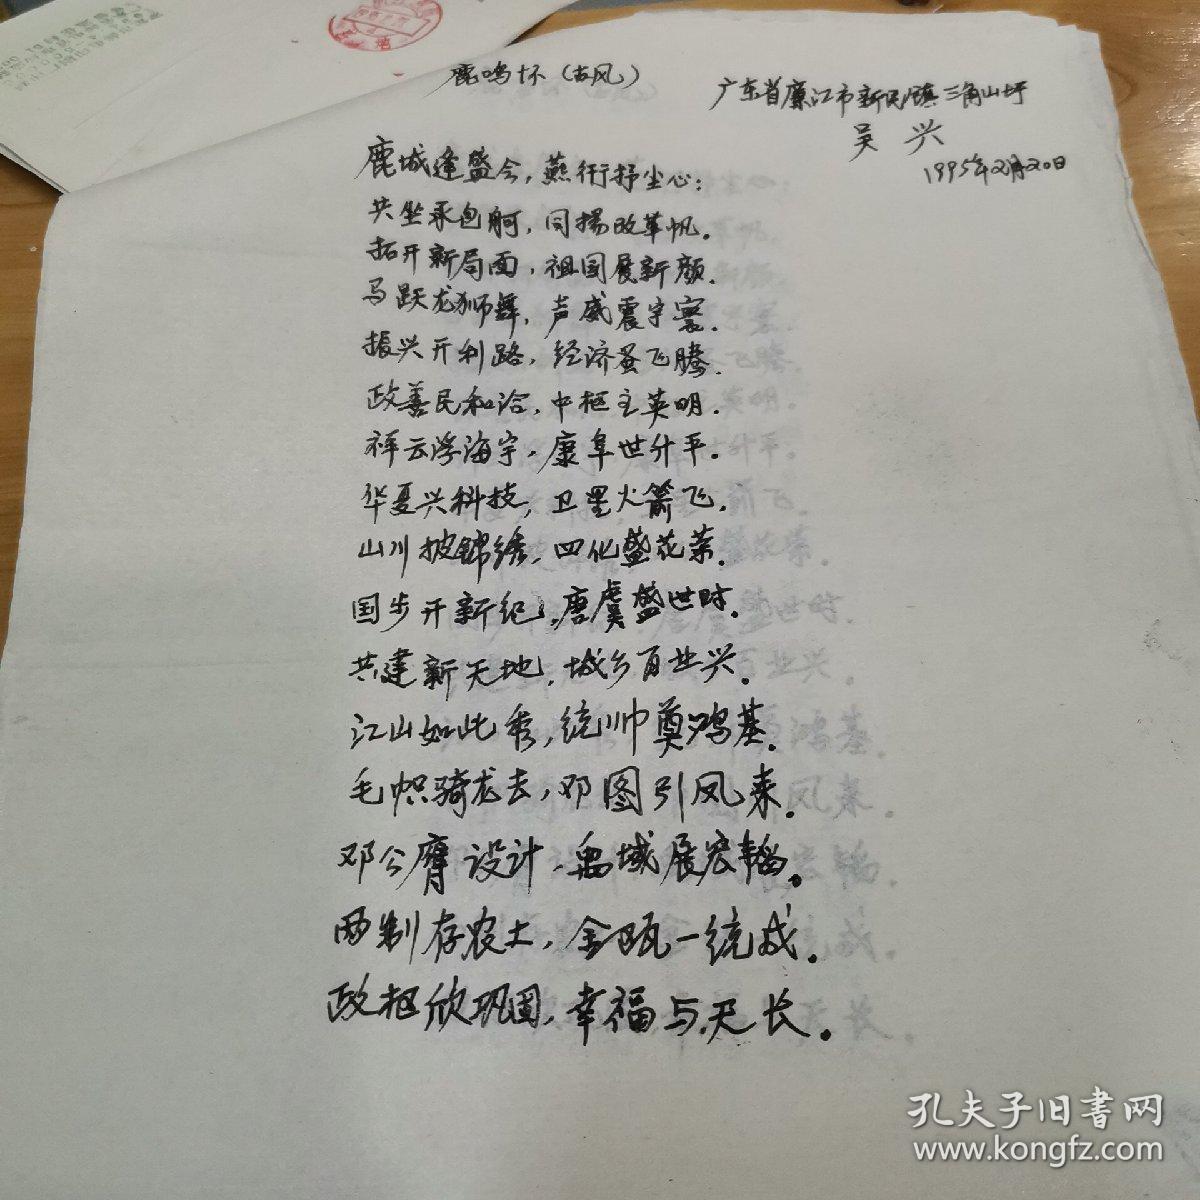 鹿鸣怀（古风）
广东省廉江市新民镇三角山圩
吴兴
1995年2月20日
鹿城逢盛会，燕衎抒尘心：
共坐承包舸，同揚改革帆．
拓开新局面，祖国展新颜．
马跃龙狮舞，声威震宇寰．
振兴开利路，经济蚤飞腾．
政善民和洽，中枢主英明．
祥云浮海宇，康阜世升平。
华夏兴科技，卫星火箭飞．
山川披锦绣，四化盛花荣．
国步开新纪，唐虞盛世时．
共建新天地，城乡百业兴．
江山如此秀，统帅奠鸿基．
毛帜骑龙去，邓图引凤来．
邓公膺设计，禹域展宏韬。
两制存农土，金瓯一统成．
政枢欣巩固，幸福与天长．
孔夫子旧书网
www.kongfz.com